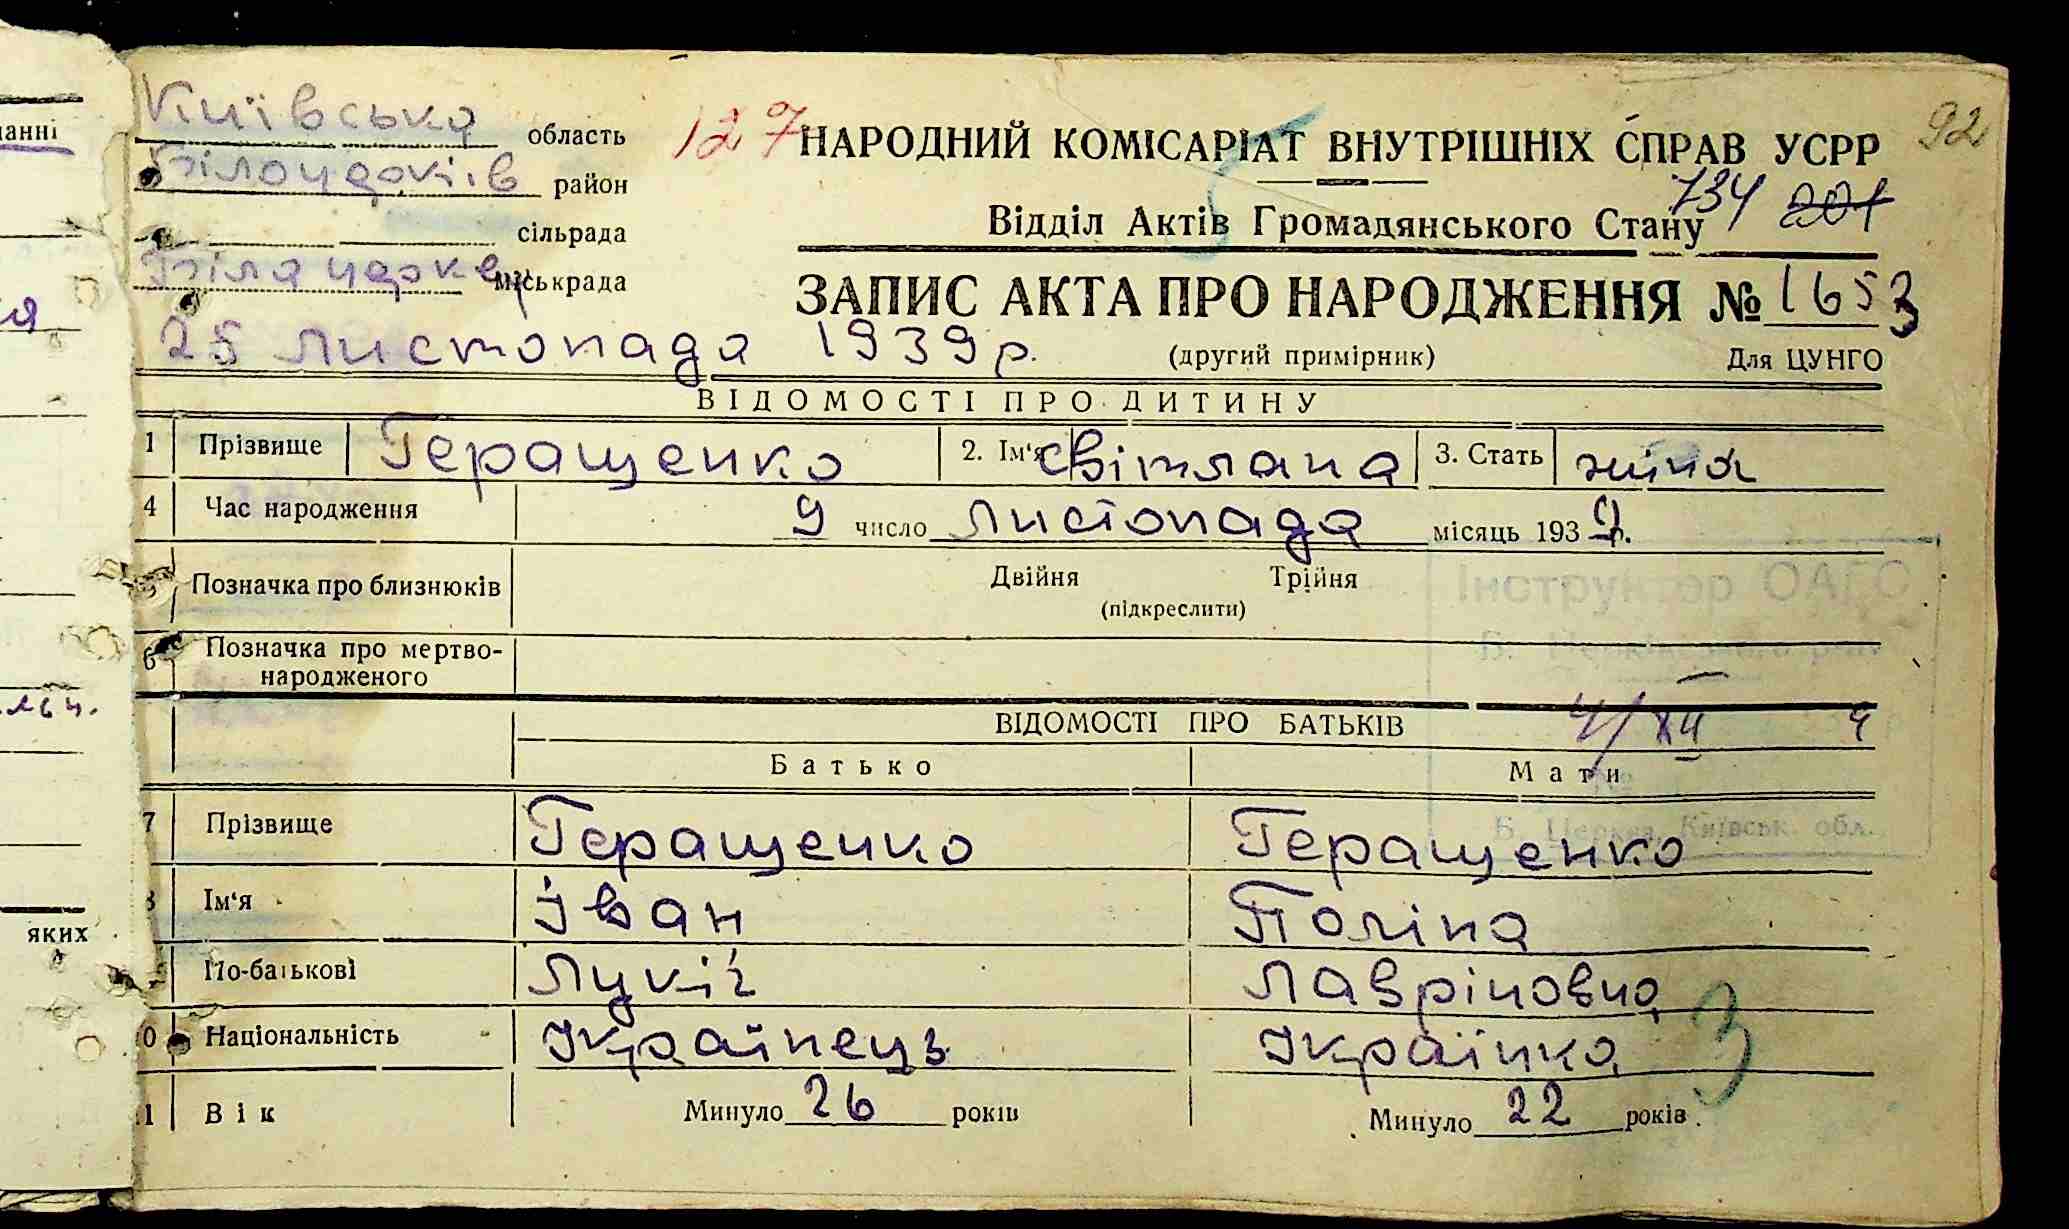 92
Київська область
127
НАРОДНИЙ КОМІСАРІАТ ВНУТРІШНІХ СПРАВ УСРР
Білоцерківс район
734 201
Відділ Актів Громадянського Стану
сільрада
Біла церкев міськрада
ЗАПИС АКТА ПРО НАРОДЖЕННЯ № 1653
25 листопада 1939 р.
(другий примірник)
Для ЦУНГО
ВІДОМОСТІ ПРО ДИТИНУ
1 Прізвище Геращенко 2. Ім'я Світлана 3. Стать жіноч
4 Час народження 9 число листопада місяць 1939 р.
Позначка про близнюків Двійня Трійня
(підкреслити)
Інструктор ОАГС
6 Позначка про мертво-
народженого
ВІДОМОСТІ ПРО БАТЬКІВ
4/XII 9
Батько Мати
Б. Церква, Київськ. обл.
7 Прізвище Геращенко Геращенко
8 Ім'я Іван Поліна
По-батькові Лукіч Лавріновна
0 Національність Українець Українка
3
1 Вік Минуло 26 років Минуло 22 років
анні
ія
яких